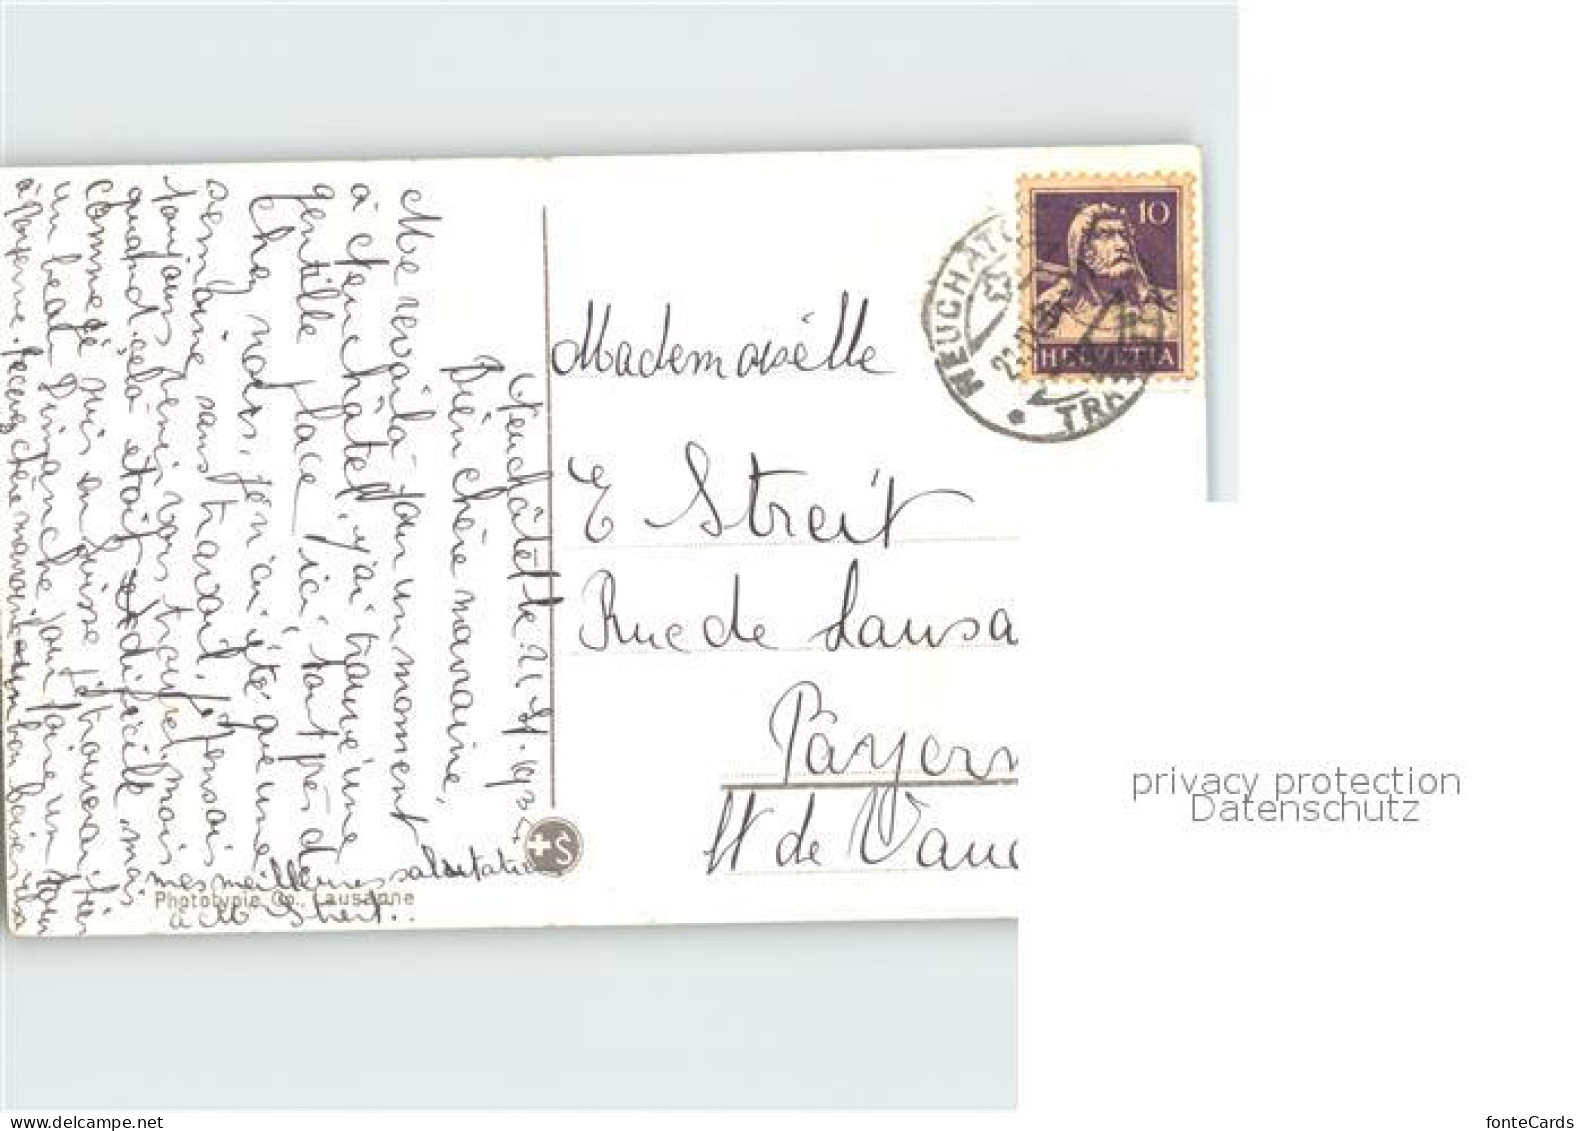 Neuchâtel le 21. 193
Bien chère marraine,
Me revoilà pour un moment
à Neuchâtel, j'ai trouvé une
gentille place ici, tout près de
chez nous, j'en ai été que une
semaine sans travail. Je pensais
toujours venir vous trouver, mais
quand cela était difficile, mais
comme je suis en Suisse je trouverai bien
un beau Dimanche pour faire un tour
à Payerne. Recevez chère marraine un bon baiser
mes meilleures salutations
à M Streit..
Photolypie Co., Lausanne
+S
Mademoiselle
E Streit
Rue de Lausa
Payern
Ct de Vau
NEUCHÂT
TRA
10
HELVETIA
privacy protection
Datenschutz
fonteCards